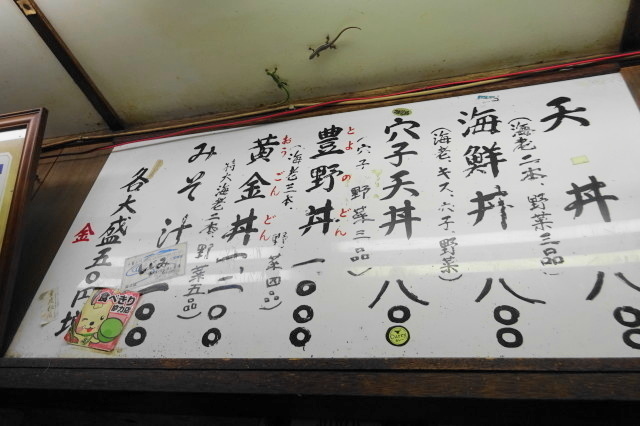 天丼 八〇〇
(海老二本、野菜三品)
海鮮丼 八〇〇
(海老、キス、穴子、野菜)
穴子天丼 八〇〇
(穴子 野菜三品)
とよのどん
豊野丼 一〇〇〇
(海老三本、野菜四品)
おうごんどん
黄金丼 一、二〇〇
(特大海老二本、野菜五品)
みそ汁 一〇〇
しじみ
各大盛五〇円増
金
食べきり